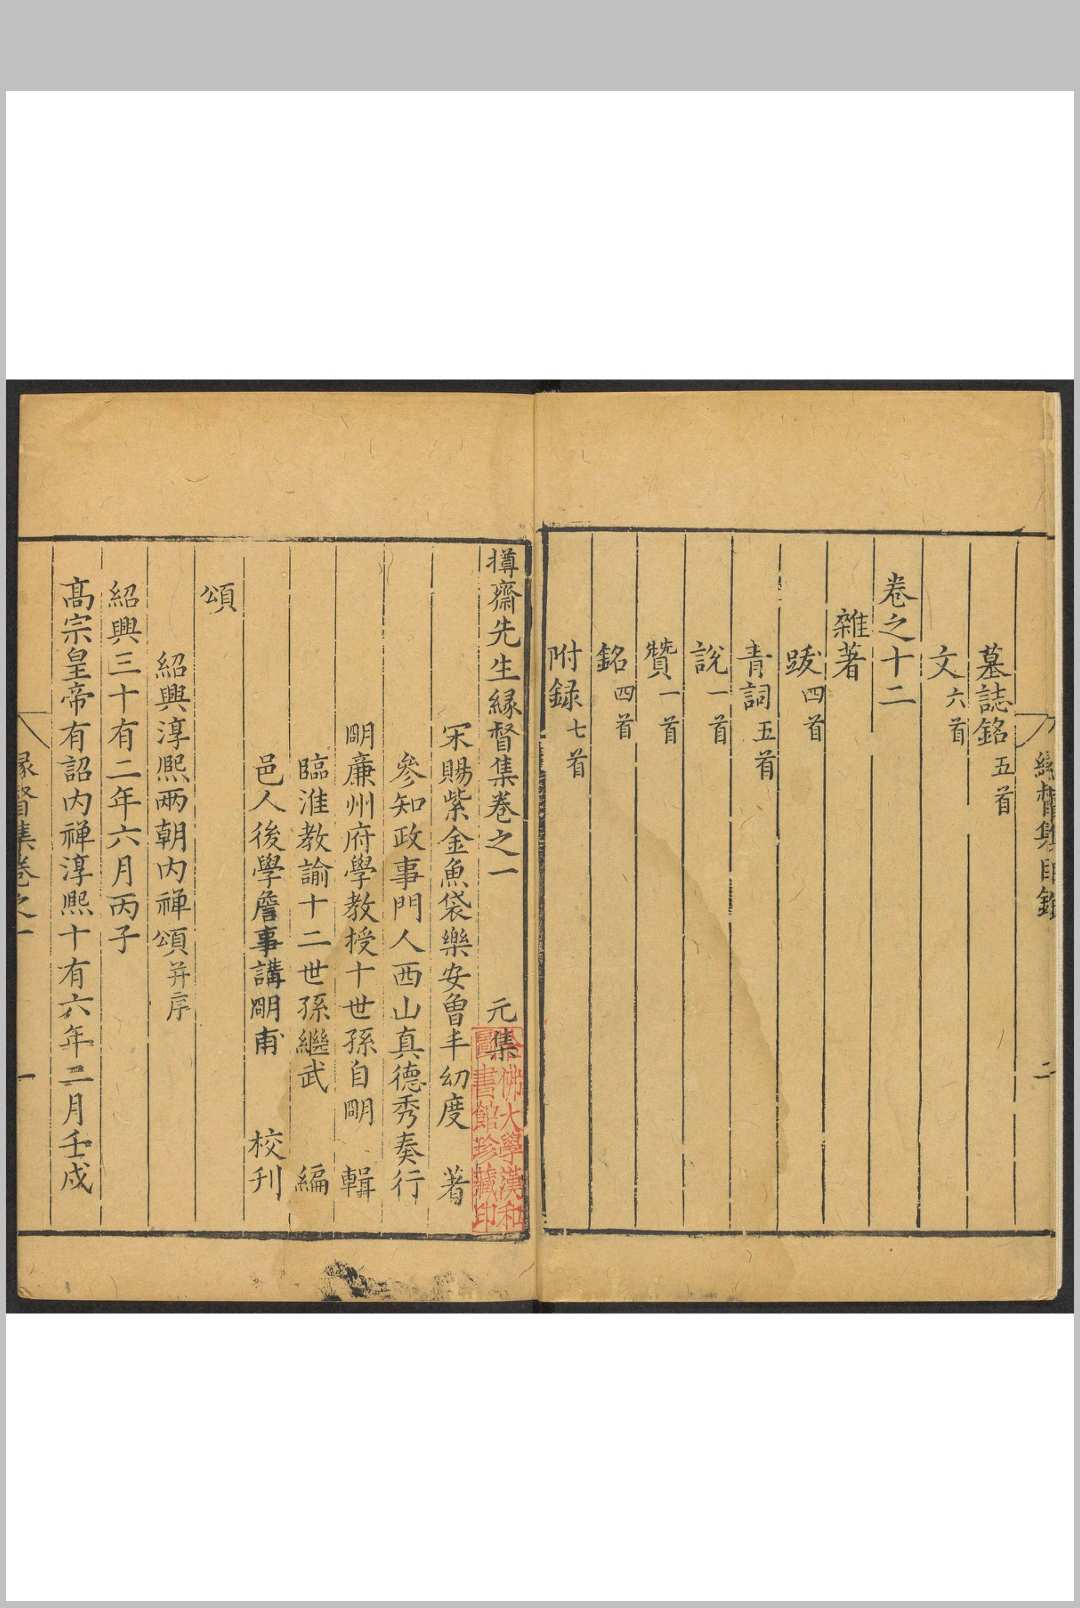 緣督集目錄
二
墓誌銘五首
文六首
卷之十二
雜著
跋四首
青詞五首
說一首
贊一首
銘四首
附録七首
撙齋先生緣督集卷之一 元集
宋賜紫金魚袋樂安曾丰幼度 著
參知政事門人西山真德秀奏行
眀廉州府學教授十世孫自眀 輯
臨淮教諭十二世孫繼武 編
邑人後學詹事講眀甫 校刋
頌
紹興淳熙兩朝内禅頌并序
紹興三十有二年六月丙子
髙宗皇帝有詔内禅淳熙十有六年二月壬戌
緣督集卷之一
一
哈佛大學漢和
圖書館珍藏印